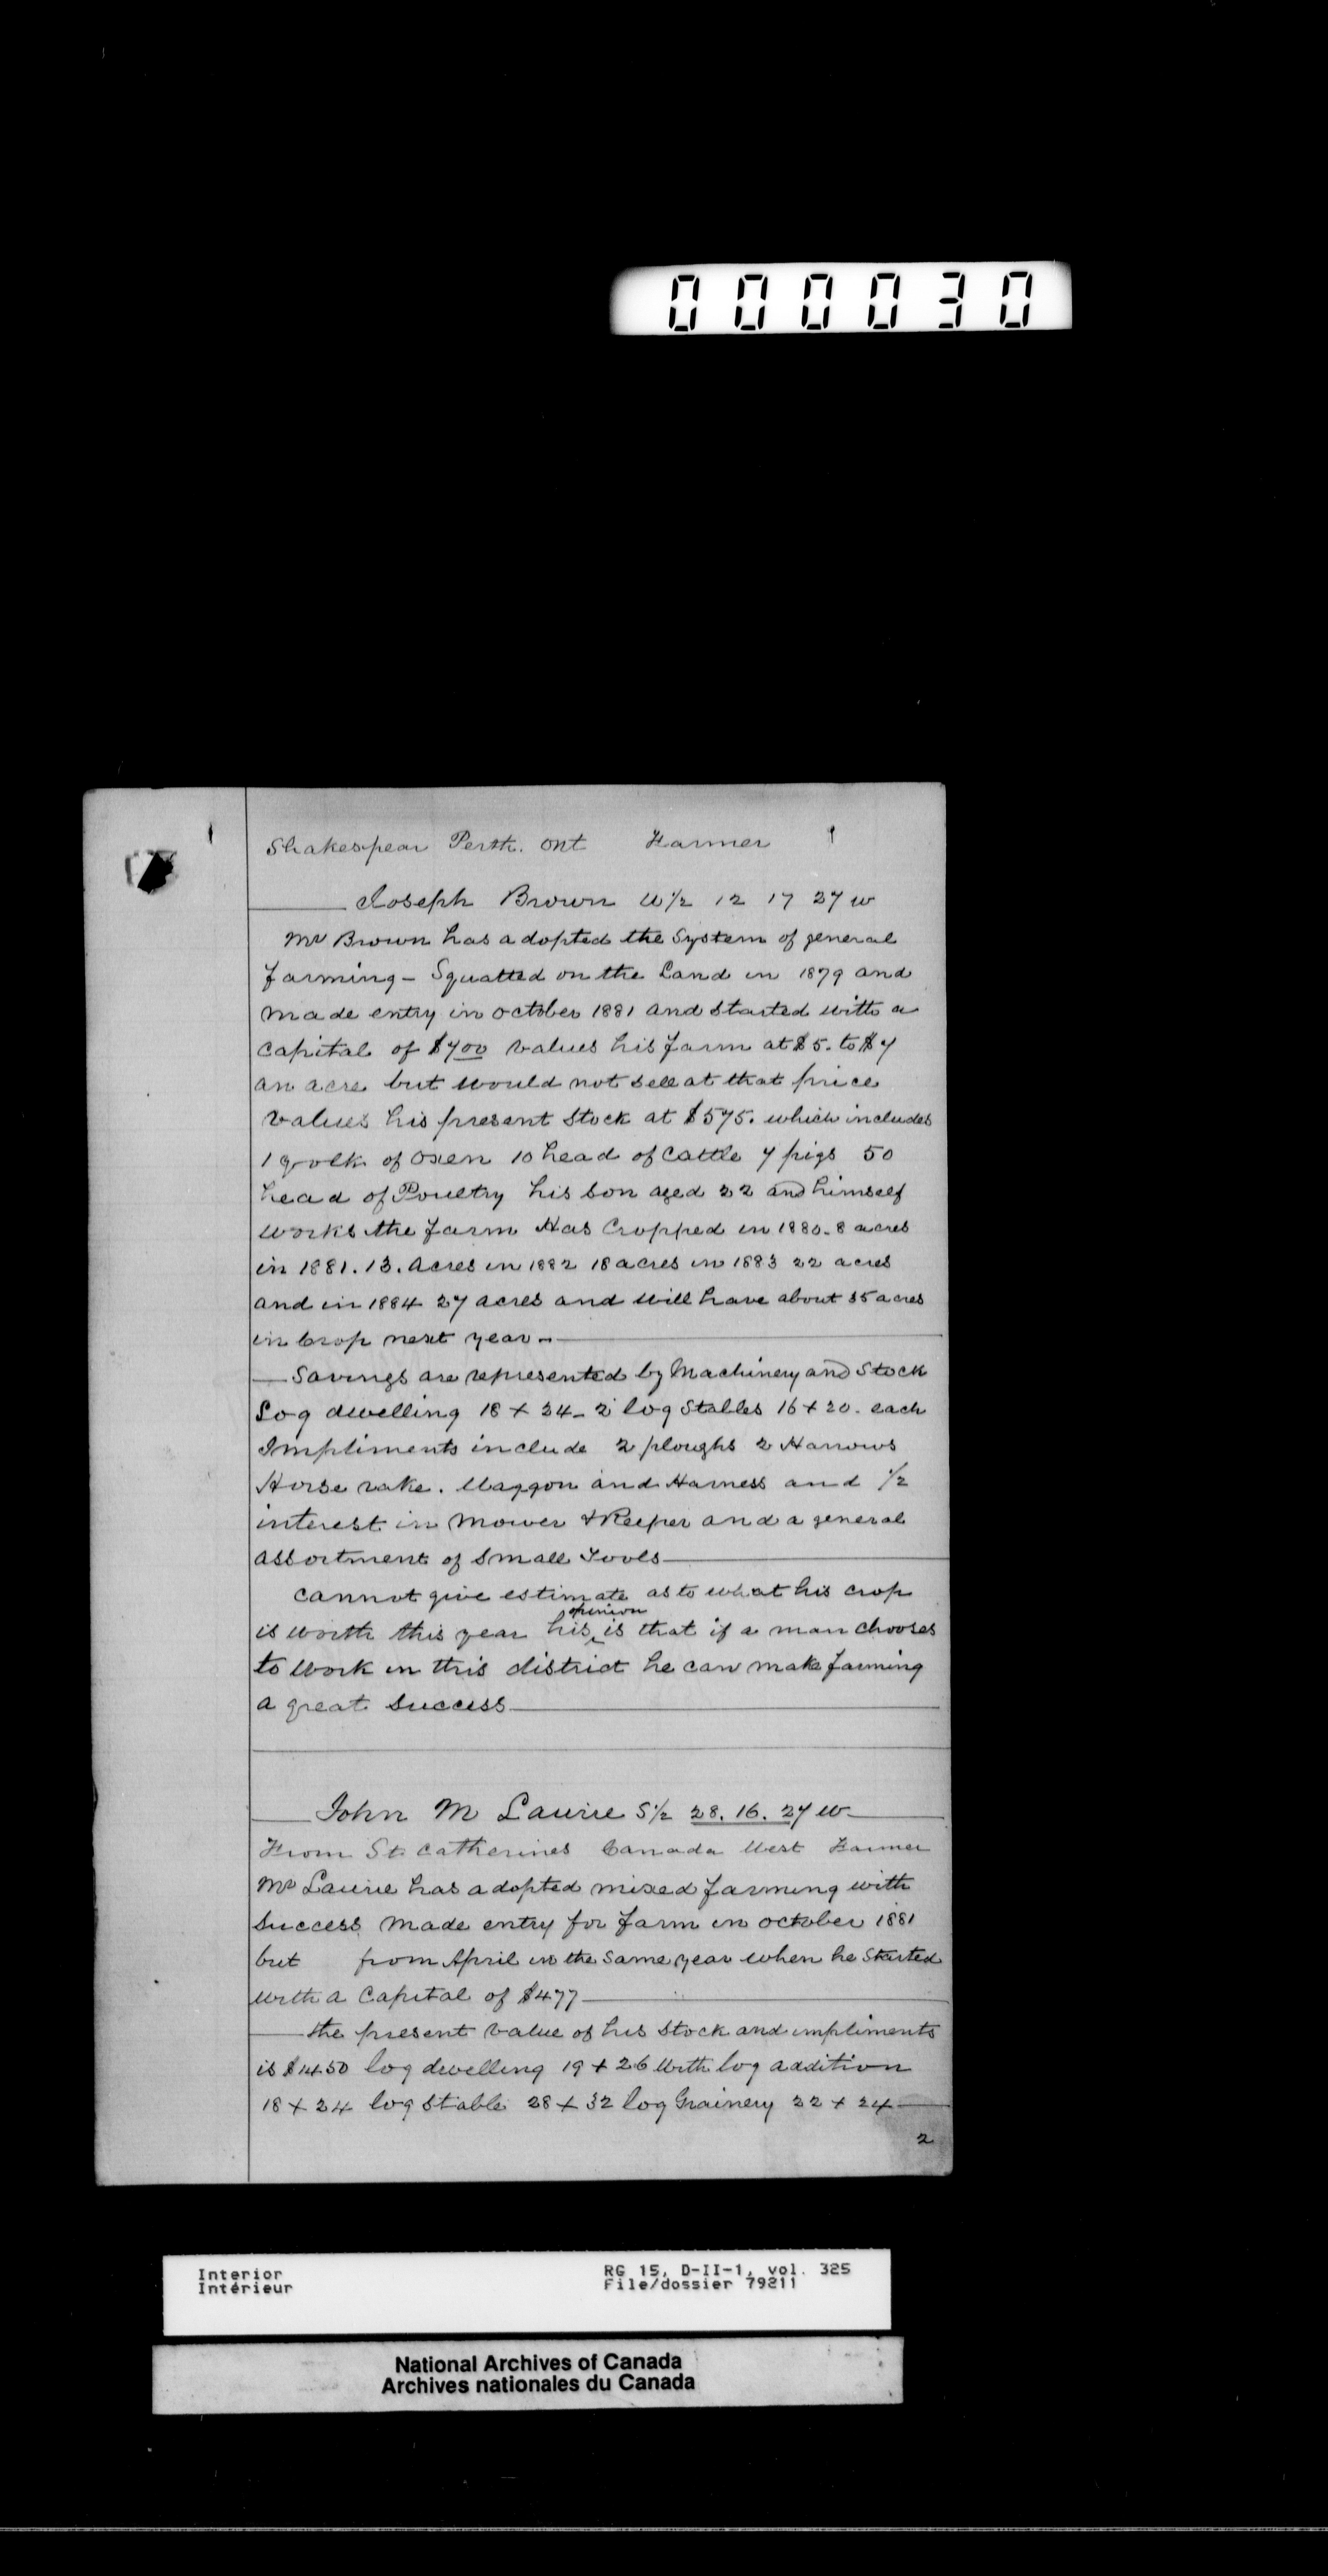 000030
Shakespear Perth. Ont Farmer 1
Joseph Brown W½ 12 17 27 W
Mr Brown has adopted the System of general
farming - Squatted on the Land in 1879 and
made entry in October 1881 and started with a
Capital of $700 values his farm at $5. to $7
an acre but would not sell at that price
values his present Stock at $575. which includes
1 yolk of Oxen 10 head of Cattle 7 pigs 50
head of Poultry his son aged 22 and himself
works the farm Has Cropped in 1880. 8 acres
in 1881. 13. Acres in 1882 18 acres in 1883 22 acres
and in 1884 27 acres and will have about 35 acres
in Crop next year -
Savings are represented by Machinery and Stock
Log dwelling 18 + 24 - 2 log Stables 16 + 20. each
Impliments include 2 ploughs 2 Harrows
Horse rake. Waggon and Harness and ½
interest in Mower & Reeper and a general
assortment of Small Tools
Cannot give estimate as to what his crop
is worth this year his opinion is that if a man chooses
to work in this district he can make farming
a great Success
John M Laurie S½ 28. 16. 27 W
From St. Catherines Canada West Farmer
Mr Laurie has adopted mixed farming with
Success Made entry for farm in October 1881
but from April in the same year when he Started
with a Capital of $477
the present value of his Stock and impliments
is $1450 log dwelling 19 + 26 with log addition
18 + 24 log Stable 28 + 32 log Grainery 22 + 24
2
Interior RG 15, D-II-1, vol. 325
Intérieur File/dossier 79211
National Archives of Canada
Archives nationales du Canada